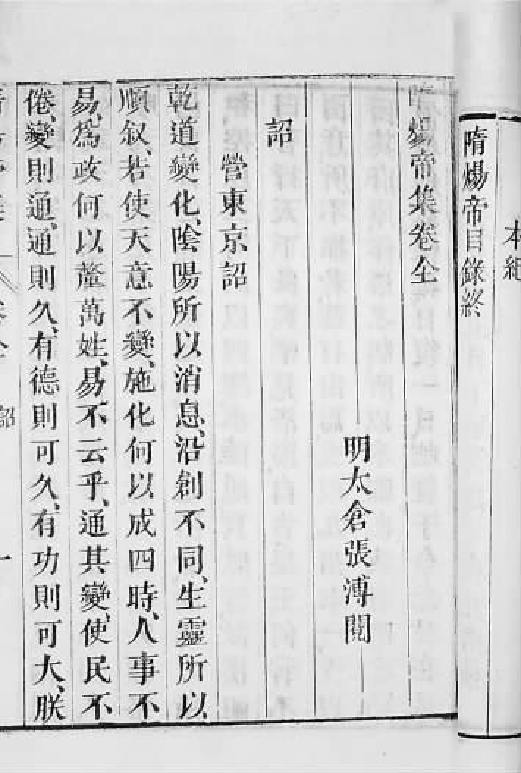 本紀
隋煬帝目錄終
隋煬帝集卷全
明太倉張溥閱
詔
營東京詔
乾道變化、陰陽所以消息、沿創不同、生靈所以
順叙、若使天意不變、施化何以成四時、人事不
易、爲政何以釐萬姓、易不云乎、通其變、使民不
倦、變則通、通則久、有德則可久、有功則可大、朕
卷全 詔 一